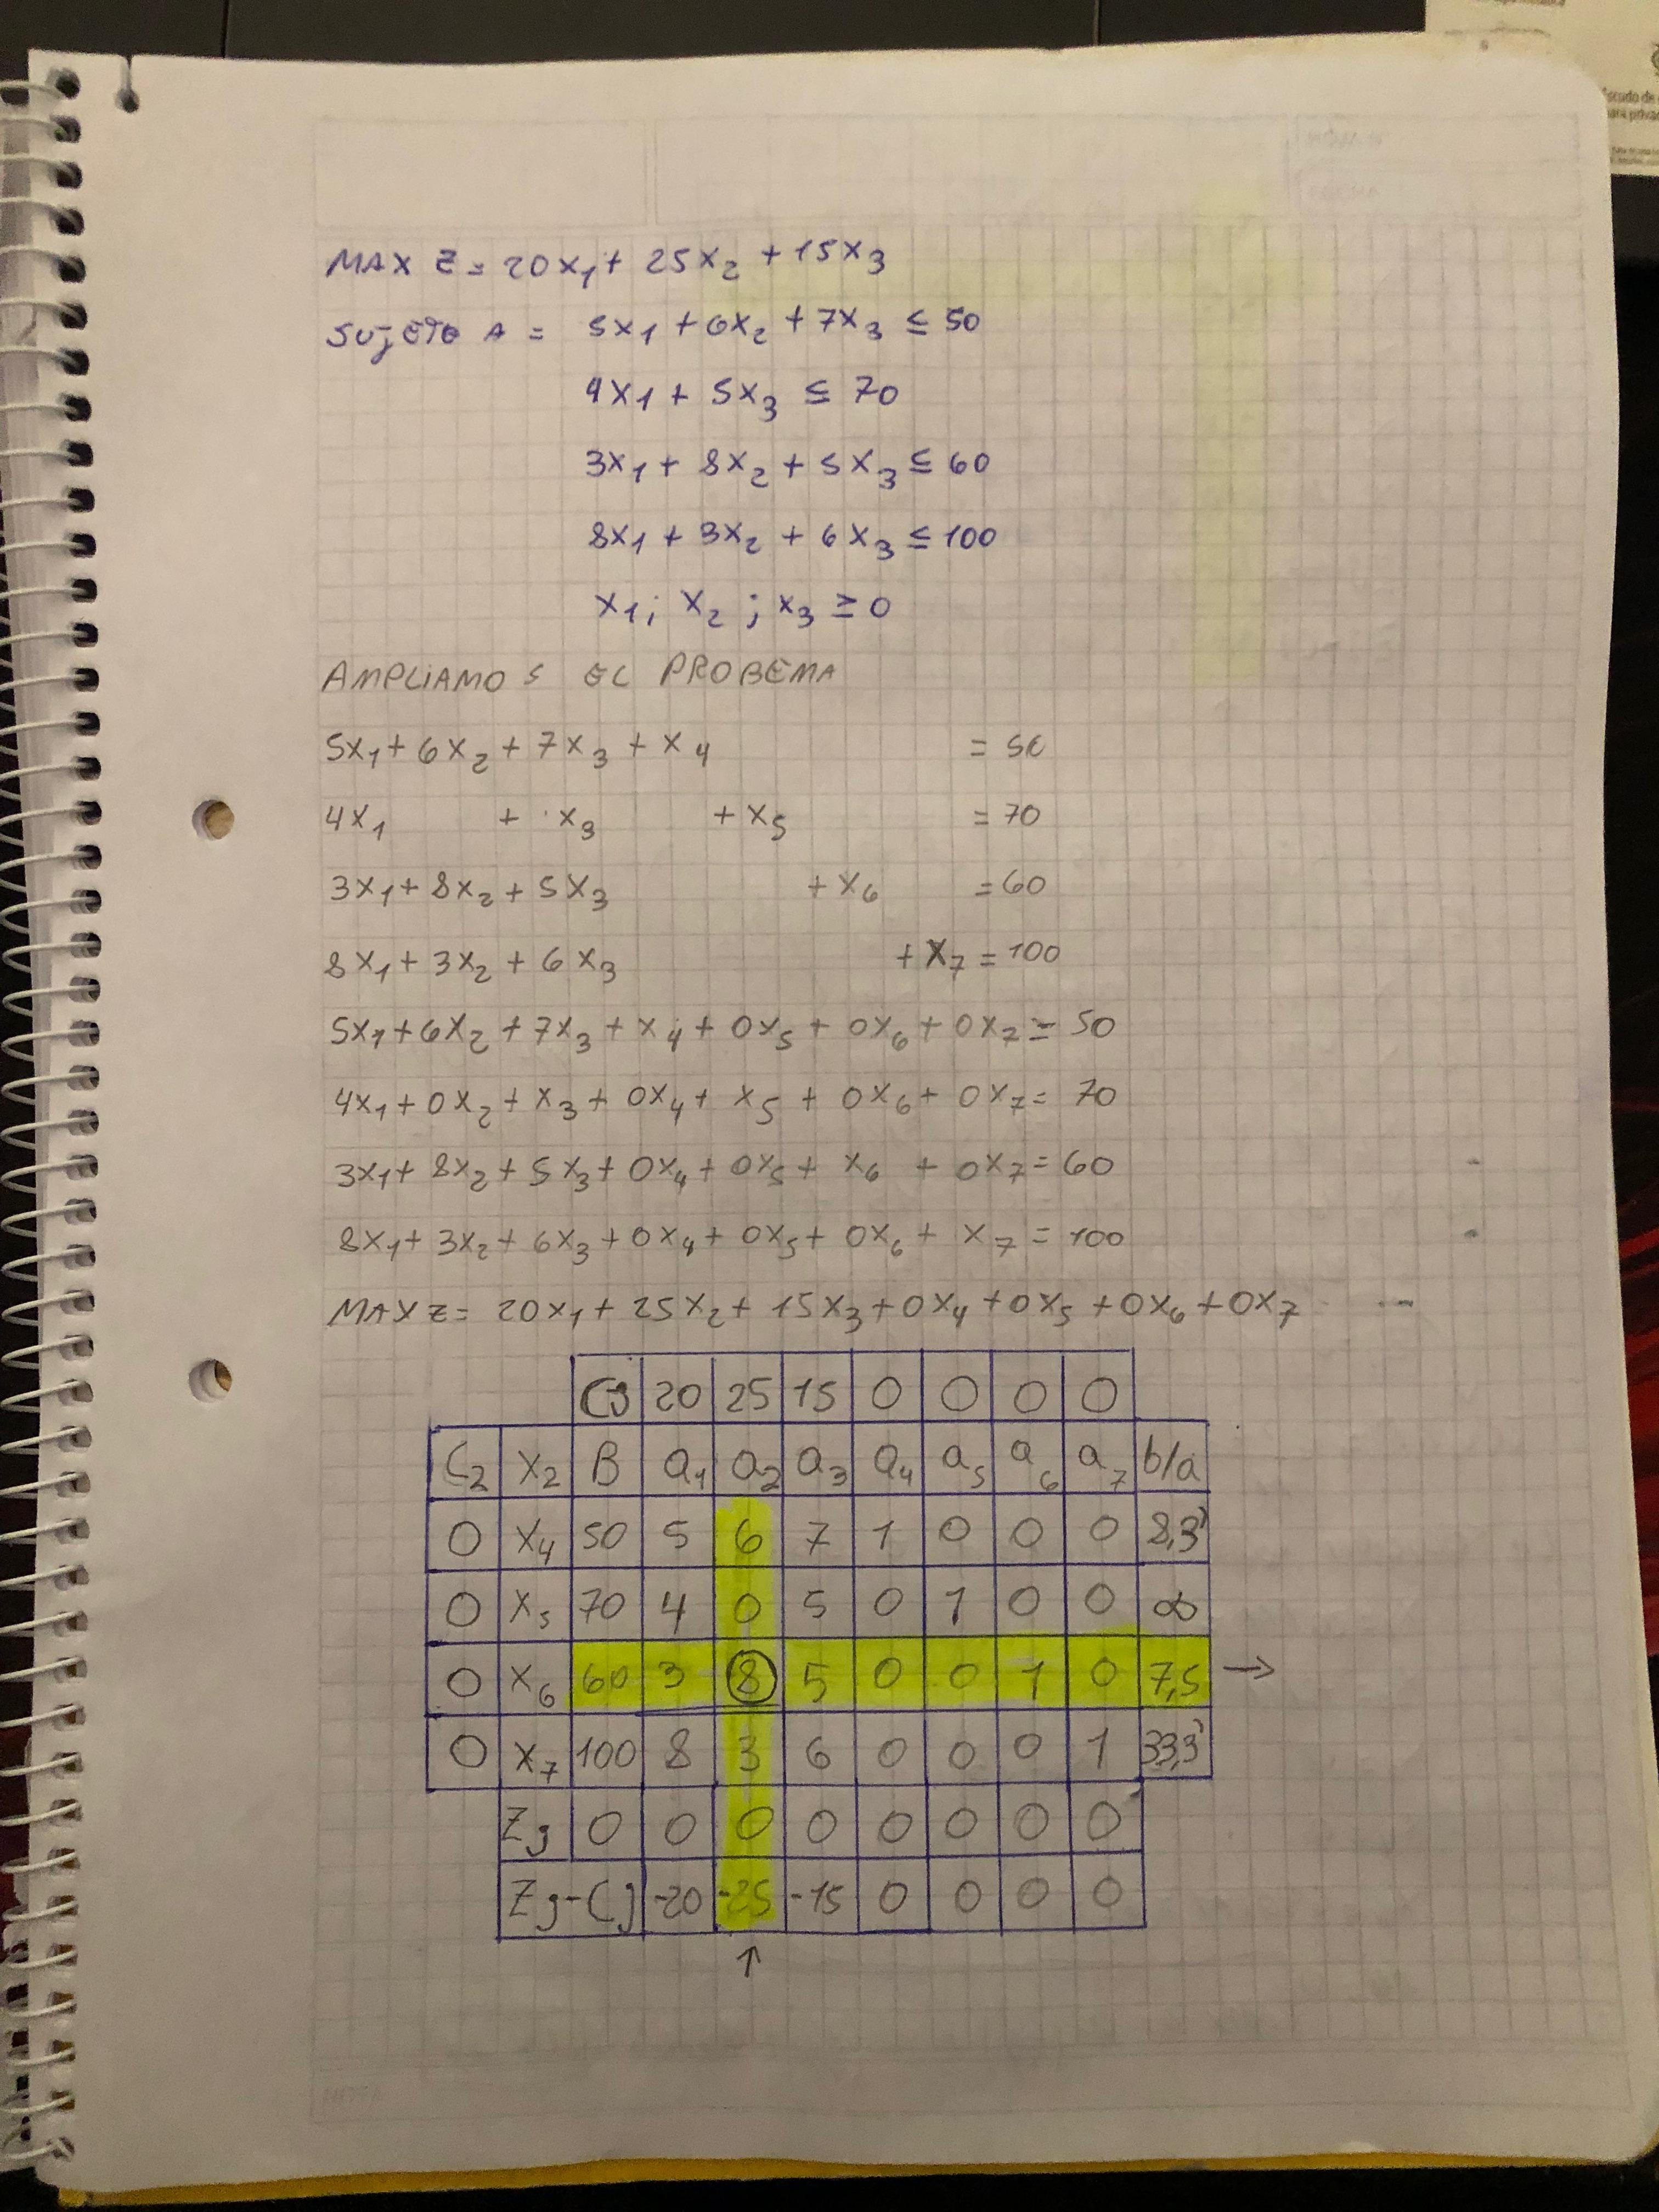 MAX Z = 20x₁ + 25x₂ + 15x₃
SUJETO A = 5x₁ + 6x₂ + 7x₃ ≤ 50
4x₁ + 5x₃ ≤ 70
3x₁ + 8x₂ + 5x₃ ≤ 60
8x₁ + 3x₂ + 6x₃ ≤ 100
x₁; x₂; x₃ ≥ 0
AMPLIAMOS EL PROBEMA
5x₁ + 6x₂ + 7x₃ + x₄ = 50
4x₁ + x₃ + x₅ = 70
3x₁ + 8x₂ + 5x₃ + x₆ = 60
8x₁ + 3x₂ + 6x₃ + x₇ = 100
5x₁ + 6x₂ + 7x₃ + x₄ + 0x₅ + 0x₆ + 0x₇ = 50
4x₁ + 0x₂ + x₃ + 0x₄ + x₅ + 0x₆ + 0x₇ = 70
3x₁ + 8x₂ + 5x₃ + 0x₄ + 0x₅ + x₆ + 0x₇ = 60
8x₁ + 3x₂ + 6x₃ + 0x₄ + 0x₅ + 0x₆ + x₇ = 100
MAX Z = 20x₁ + 25x₂ + 15x₃ + 0x₄ + 0x₅ + 0x₆ + 0x₇
Cj 20 25 15 0 0 0 0
C₂ X₂ B a₁ a₂ a₃ a₄ a₅ a₆ a₇ b/a
0 X₄ 50 5 6 7 1 0 0 0 8,3
0 X₅ 70 4 0 5 0 1 0 0 ∞
0 X₆ 60 3 8 5 0 0 1 0 7,5 →
0 X₇ 100 8 3 6 0 0 0 1 33,3
Zj 0 0 0 0 0 0 0 0
Zj-Cj -20 -25 -15 0 0 0 0
↑